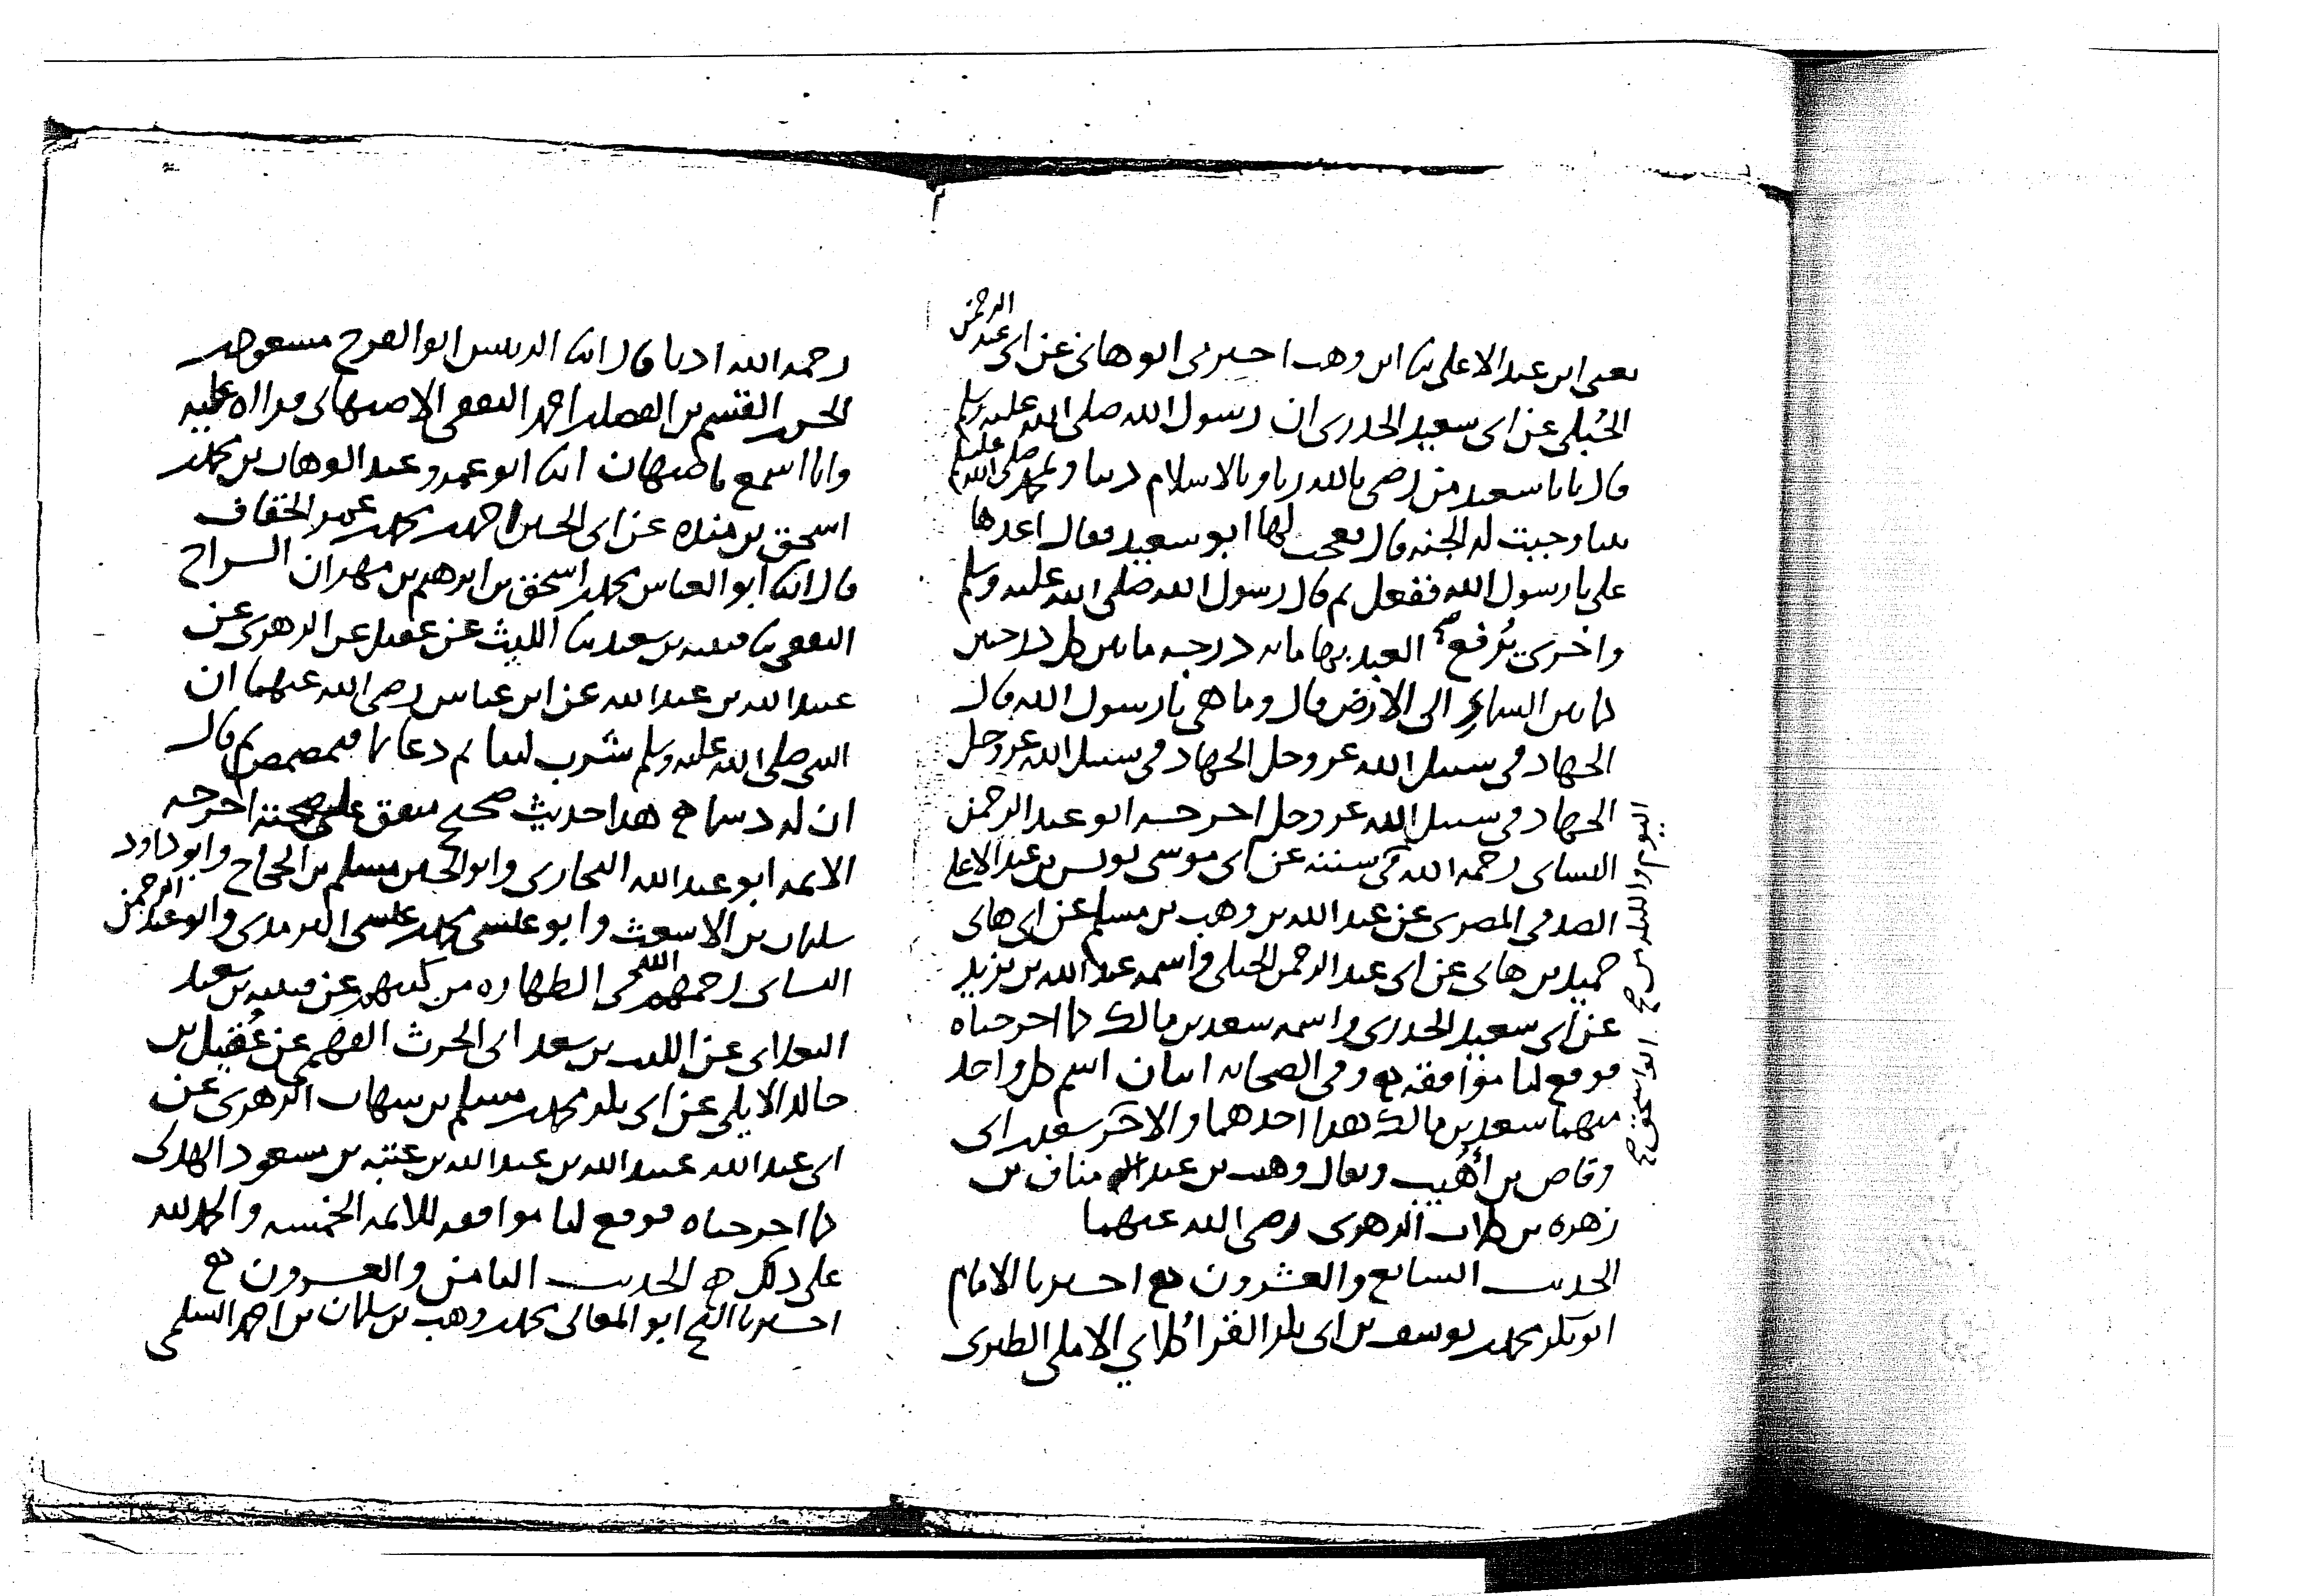 يعني ابن عبد الاعلى ثنا ابن وهب اخبرني ابو هانئ عن ابي عبد الرحمن
الحُبلي عن ابي سعيد الخدري ان رسول الله صلى الله عليه وسلم
قال يابا سعيد من رضي بالله ربا وبالاسلام دينا وبمحمد صلى الله عليه وسلم
نبيا وجبت له الجنه قال فعجب لها ابو سعيد فقال اعدها
علي يا رسول الله ففعل ثم قال رسول الله صلى الله عليه وسلم
واخرى يُرفع العبد بها مايه درجه ما بين كل درجتين
كما بين السماءِ الى الارض قال وما هي يا رسول الله قال
الجهاد في سبيل الله عز وجل الجهاد في سبيل الله عز وجل
الجهاد في سبيل الله عز وجل اخرجه ابو عبد الرحمن
النسائي رحمه الله في سننه عن ابي موسى يونس بن عبد الاعلى
الصدفي المصري عن عبد الله بن وهب بن مسلم عن ابي هانئ
حميد بن هانئ عن ابي عبد الرحمن الحبلي واسمه عبد الله بن يزيد
عن ابي سعيد الخدري واسمه سعد بن مالك كما اخرجناه
فوقع لنا موافقه وفي الصحابه اثنان اسم كل واحد
منهما سعد بن مالك هذا احدهما والاخر سعد بن ابي
وقاص بن أُهَيب ويقال وهب بن عبد مناف بن
زهره بن كلاب الزهري رضي الله عنهما
الحديث السابع والعشرون اخبرنا الامام
ابو بكر محمد بن يوسف بن ابي بكر الاملي الطبري
اليوم والليله
ابو اسحق
رحمه الله اذنا قال انبا الرييس ابو الفرج مسعود بن
الحسن بن القسم بن الفضل بن احمد الثقفي الاصبهاني قراه عليه
وانا اسمع باصبهان انبا ابو عمرو عبد الوهاب بن محمد بن
اسحق بن منده عن ابي الحسين احمد بن محمد بن عمر الخفاف
قال انبا ابو العباس محمد بن اسحق بن ابرهيم بن مهران السراج
الثقفي ثنا قتيبه بن سعيد ثنا الليث عن عقيل عن الزهري عن
عبيد الله بن عبد الله عن ابن عباس رضي الله عنهما ان
النبي صلى الله عليه وسلم شرب لبنا ثم دعا بما فمضمض ثم قال
ان له دسما هذا حديث صحيح متفق على صحته اخرجه
الايمه ابو عبد الله البخاري وابو الحسين مسلم بن الحجاج وابو داود
سليمان بن الاشعث وابو عيسى محمد بن عيسى الترمذي وابو عبد الرحمن
النسائي رحمهم الله في الطهاره من كتبهم عن قتيبه بن سعيد
البغلاني عن الليث بن سعد ابي الحرث الفهمي عن عُقيل بن
خالد الايلي عن ابي بكر محمد بن مسلم بن شهاب الزهري عن
ابي عبد الله عبيد الله بن عبد الله بن عتبه بن مسعود الهذلي
كما اخرجناه فوقع لنا موافقه للايمه الخمسه والحمد لله
على ذلك الحديث الثامن والعشرون
اخبرنا الشيخ ابو المعالي محمد بن وهب بن سلمان بن احمد السلمي